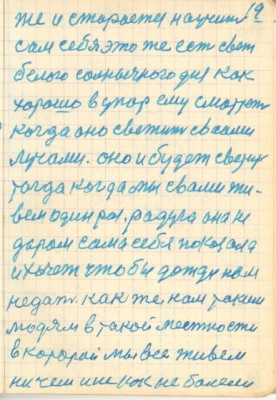 же и старается научить 19
сам себя это же есть свет
белого солнычного дня как
хорошо в упор ему смотреть
когда оно светит своими
лучами. оно и будет
тогда когда мы с вами жи-
вем один раз. радуга она не
даром сама себя показала
и хочет чтобы дождя нам
недать. как же нам таким
людям в такой местности
в которой мы все живем
ни чем и не как не болеем